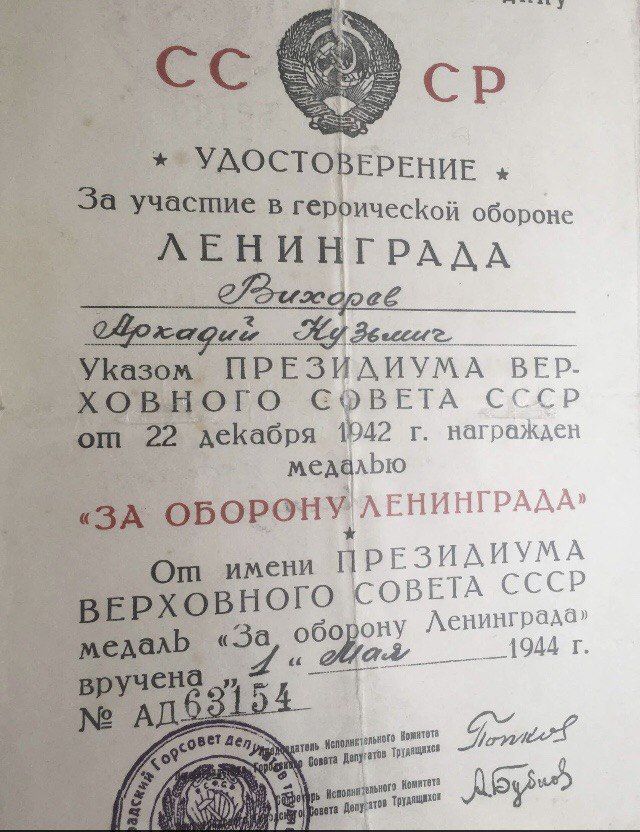 СССР
★ УДОСТОВЕРЕНИЕ ★
За участие в героической обороне
ЛЕНИНГРАДА
Вихорев
Аркадий Кузьмич
Указом ПРЕЗИДИУМА ВЕР-
ХОВНОГО СОВЕТА СССР
от 22 декабря 1942 г. награжден
медалью
«ЗА ОБОРОНУ ЛЕНИНГРАДА»
★
От имени ПРЕЗИДИУМА
ВЕРХОВНОГО СОВЕТА СССР
медаль «За оборону Ленинграда»
вручена „1" Мая 1944 г.
№ АД 63154
Исполнительного Комитета
Городского Совета Депутатов Трудящихся
Попков
Секретарь Исполнительного Комитета
Совета Депутатов Трудящихся
А Бубнов
Горсовет депутатов
РСФСР